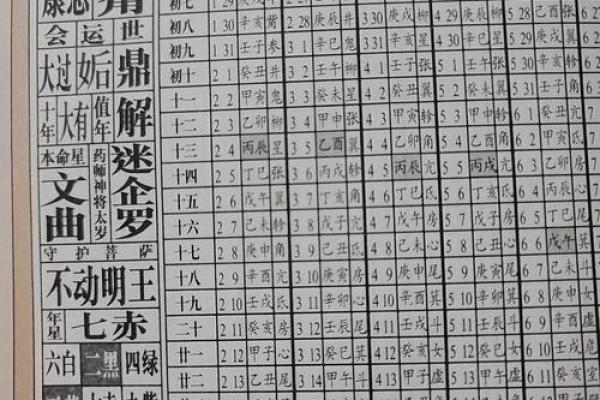 会运世
大过 姤后 鼎
十年 大有 值年 解
本命星 文曲
药师神将太岁 迷企罗
守护菩萨
不动明王
年星 七赤
六白 二黑 四绿
初七 1 29
初八 1 30 辛亥觜 2 28 庚辰井 3 30 庚戌柳 4 29 庚辰柳 5 28 己酉张 6 27
初九 1 31 壬子参 3 1 辛巳鬼 3 31 辛亥星 4 30 辛巳星 5 29 庚戌翼 6
初十 2 1 癸丑井 3 2 壬午柳 4 1 壬子张 5 1 壬午张 5 30 辛亥轸 6
十一 2 2 甲寅鬼 3 3 癸未星 4 2 癸丑翼 5 2 癸未翼 5 31 壬子角 6
十二 2 3 乙卯柳 3 4 甲申张 4 3 甲寅轸 5 3 甲申轸 6 1 癸丑亢 7
十三 2 4 丙辰星 3 5 乙酉翼 4 4 乙卯角 5 4 乙酉角 6 2 甲寅氐 7
十四 2 5 丁巳张 3 6 丙戌轸 4 5 丙辰亢 5 5 丙戌亢 6 3 乙卯房 7
十五 2 6 戊午翼 3 7 丁亥角 4 6 丁巳氐 5 6 丁亥氐 6 4 丙辰心 7
十六 2 7 己未轸 3 8 戊子亢 4 7 戊午房 5 7 戊子房 6 5 丁巳尾 7
十七 2 8 庚申角 3 9 己丑氐 4 8 己未心 5 8 己丑心 6 6 戊午箕 7
十八 2 9 辛酉亢 3 10 庚寅房 4 9 庚申尾 5 9 庚寅尾 6 7 己未斗 7
十九 2 10 壬戌氐 3 11 辛卯心 4 10 辛酉箕 5 10 辛卯箕 6 8 庚申女 7
二十 2 11 癸亥房 3 12 壬辰尾 4 11 壬戌斗 5 11 壬辰斗 6 9 辛酉虚
廿一 2 12 甲子心 3 13 癸巳箕 4 12 癸亥女 5 12 癸巳女 6 10 壬戌危
廿二 2 13 乙丑尾 3 14 甲午斗 4 13 甲子虚 5 13 甲午虚 6 11 癸亥室